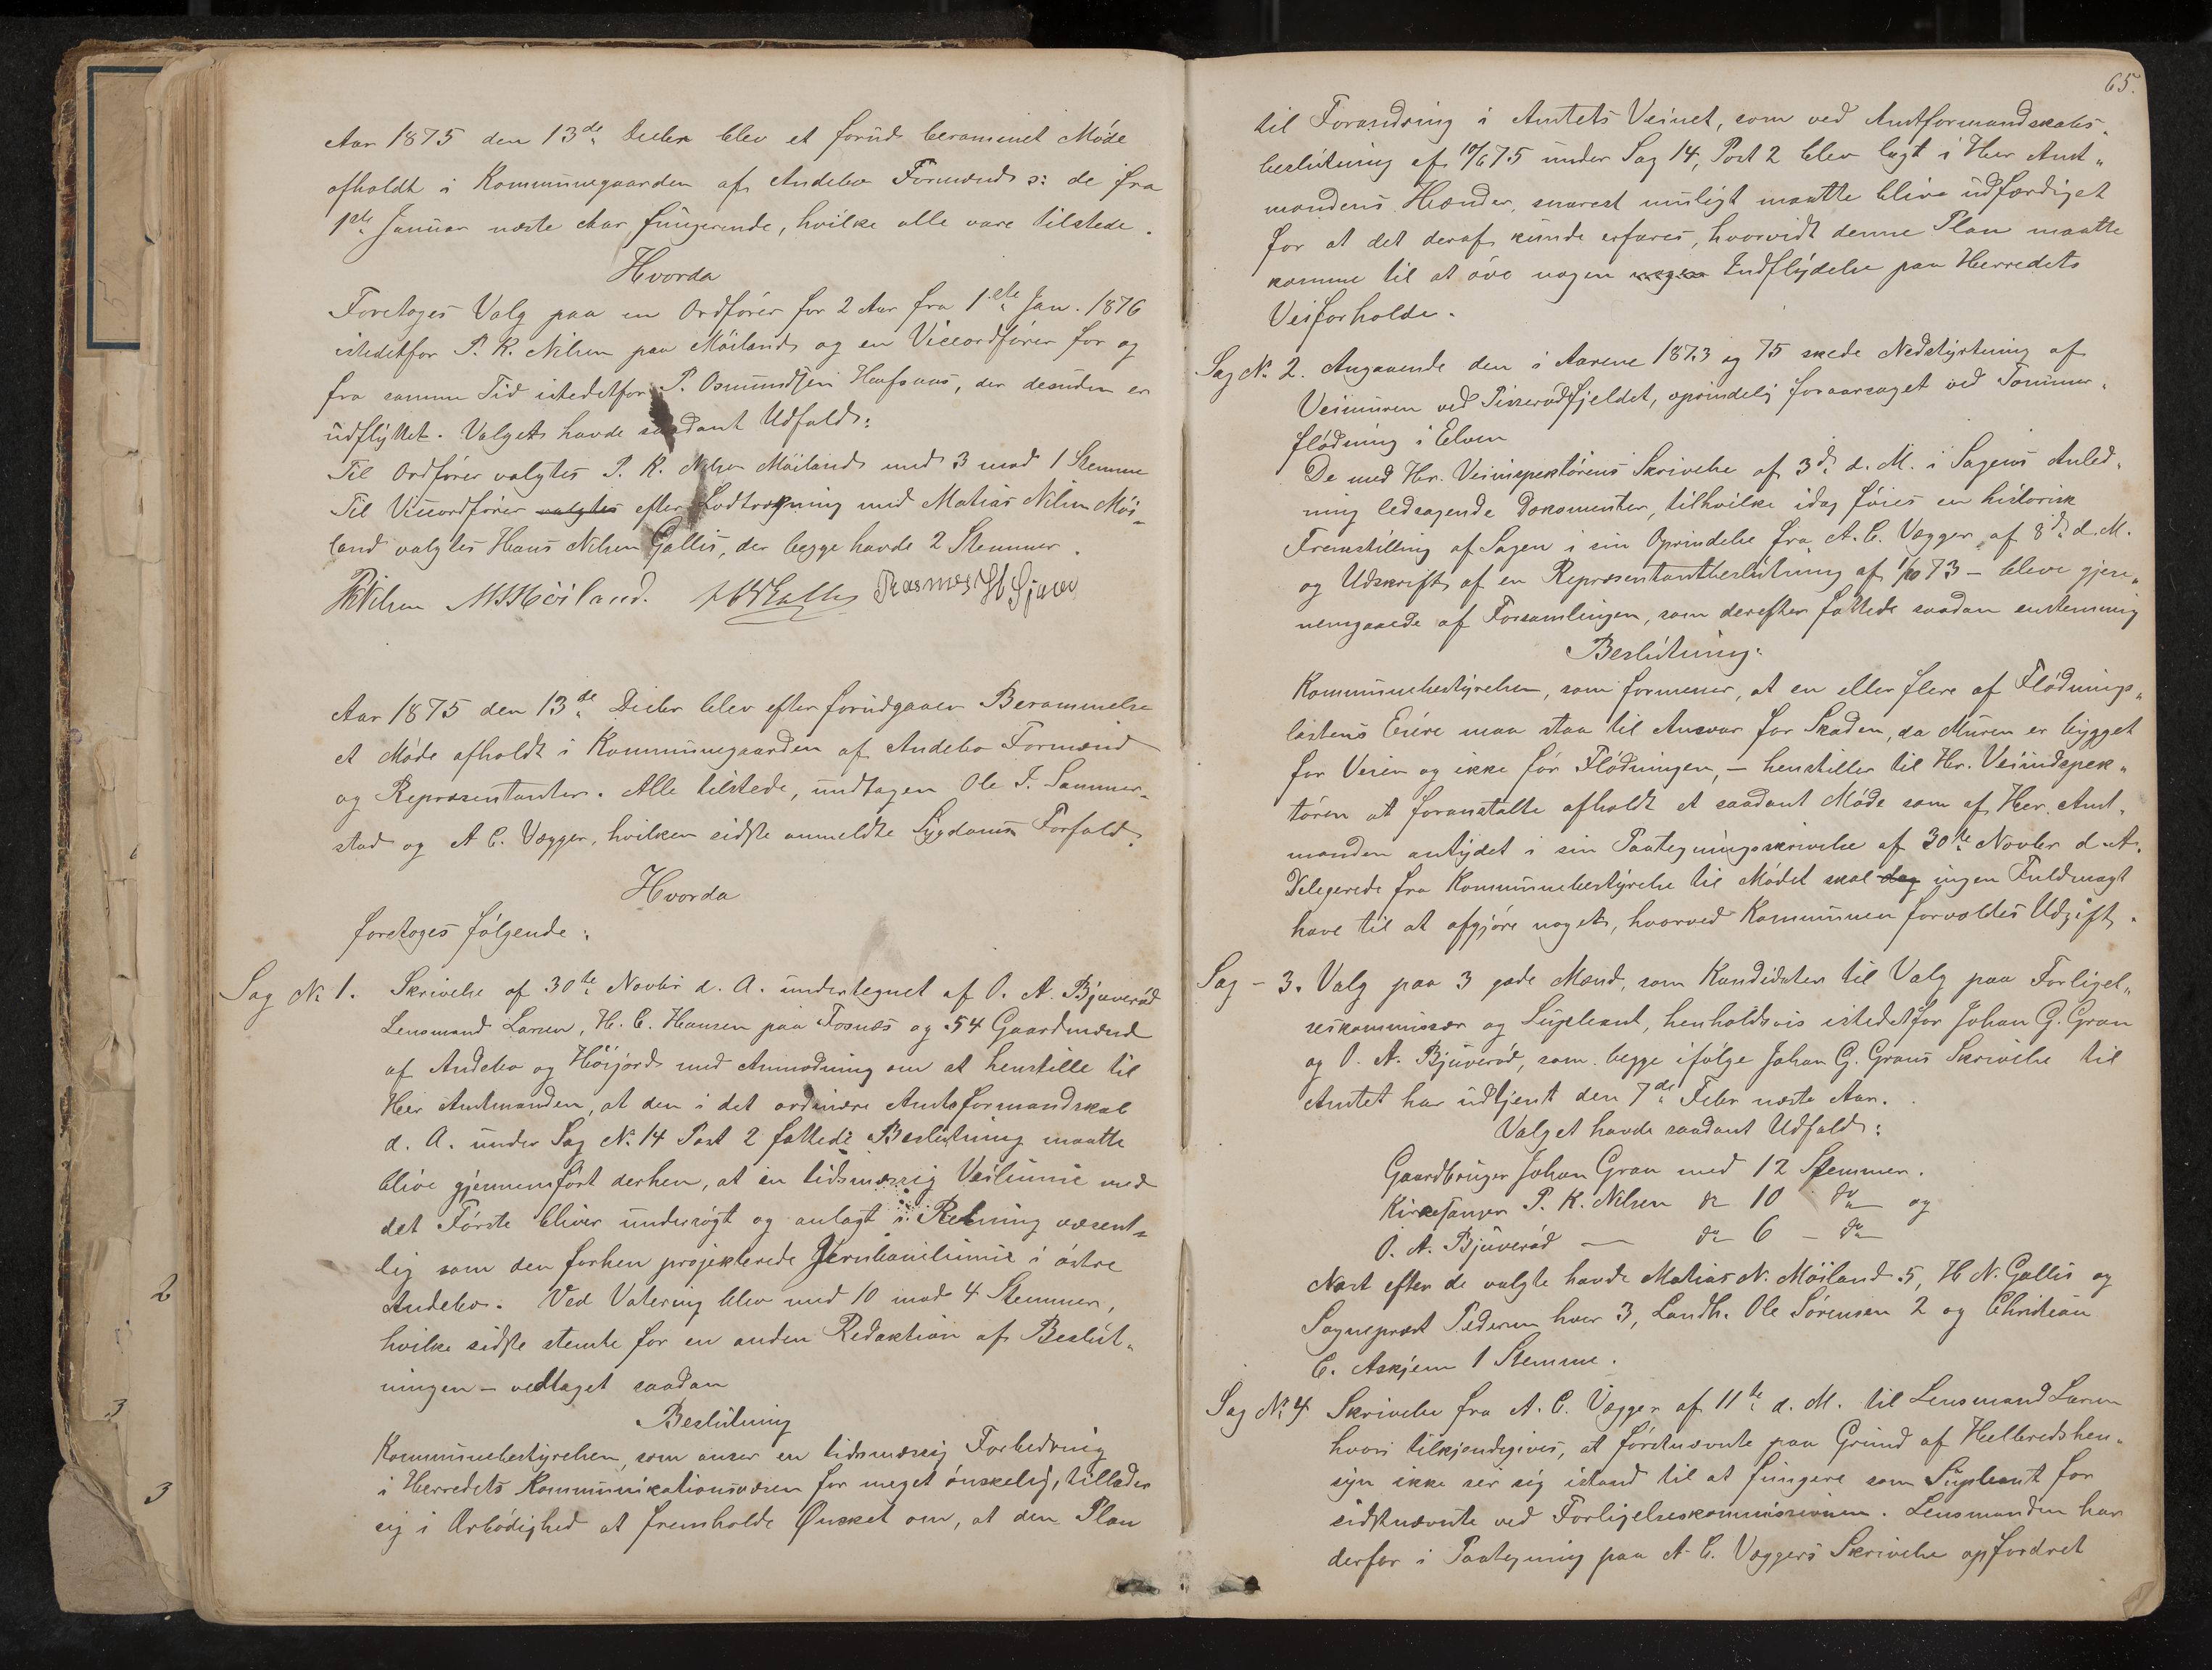 Aar 1875 den 13de Decbr blev et forud berammet Møde
afholdt i Kommunegaarden af Andebo Formænd ɔ: de fra
1ste Januar næste Aar fungerende, hvilke alle vare tilstede.
Hvorda
Foretoges Valg paa en Ordfører for 2 Aar fra 1ste Jan. 1876
istedetfor P. K. Nilsen paa Møiland og en Viceordfører for og
fra samme Tid istedetfor P. Osmundsen Hafsaas, der desuden er
udflyttet. Valget havde saadant Udfald:
Til Ordfører valgtes P. K. Nilsen Møiland med 3 mod 1 Stemme
Til Viceordfører valgtes efter Lodtrækning med Matias Nilsen Møi-
land valgtes Hans Nilsen Gallis, der begge havde 2 Stemmer.
PKNilsen MNMöiland. HNGallis Rasmus
Aar 1875 den 13de Decbr blev efter forudgaaen Berammelse
et Møde afholdt i Kommunegaarden af Andebo Formænd
og Repræsentanter. Alle tilstede, undtagen Ole I. Sammer-
stad og A C. Vægger, hvilken sidste anmeldte Sygdoms Forfald.
Hvorda
foretoges følgende:
Sag No 1. Skrivelse af 30te Novbr d. A. undertegnet af O. A. Bjuerød
Lensmand Larsen, H. C. Hansen paa Fosnæs og 54 Gaardmænd
af Andebo og Høijord med Anmodning om at henstille til
Herr Amtmanden, at den i det ordinære Amtsformandskab
d. A. under Sag No 14 Post 2 fattede Beslutning maatte
blive gjennemført derhen, at en tidsmæssig Veilinie med
det Første bliver undersøgt og anlagt i Retning væsent-
lig som den forhen projekterede Jernbanelinie i østre
Andebo. Ved Votering blev med 10 mod 4 Stemmer,
hvilke sidste stemte for en anden Redaktion af Beslut-
ningen – vedtaget saadan
Beslutning
Kommunebestyrelsen, som anser en tidsmæssig Forbedring
i Herredets Kommunikationsvæsen for meget ønskelig, tillader
sig i Ærbødighed at fremholde Ønsket om, at den Plan
65.
til Forandring i Amtets Veinet, som ved Amtformandskabs-
beslutning af 10/6 75 under Sag 14, Post 2 blev lagt i Herr Amt-
mandens Hænder, snarest muligt maatte blive udfærdiget
for at det deraf kunde erfares, hvorvidt denne Plan maatte
komme til at øve nogen nogen Indflydelse paa Herredets
Veiforholde.
Sag No 2. Angaaende den i Aarene 1873 og 75 skede Nedstyrtning af
Veimuren ved Pisserødfjeldet, oprindelig foraarsaget ved Tømmer-
flødning i Elven
De med Hr. Veiinspektørens Skrivelse af 3de d. M. i Sagens Anled-
ning ledsagende Dokumenter, tilhvilke idag føies en historisk
Fremstilling af Sagen i sin Oprindelse fra A. C. Vægger af 8de d. M.
og Udskrift af en Repræsentantbeslutning af 1/10 73 – bleve gjen-
nemgaaede af Forsamlingen, som derefter fattede saadan enstemmig
Beslutning:
Kommunebestyrelsen, som formener, at en eller flere af Flødnings-
lastens Eiere maa staa til Ansvar for Skaden, da Muren er bygget
for Veien og ikke for Flødningen, – henstiller til Hr. Veiindspek-
tøren at foranstalte afholdt et saadant Møde som af Herr Amt-
manden antydet i sin Paategningsskrivelse af 30te Novbr d. A.
Delegerede fra Kommunebestyrelse til Mødet skal dog ingen Fuldmagt
have til at afgjøre noget, hvorved Kommunen forvoldes Udgift.
Sag – 3. Valg paa 3 gode Mænd, som Kandidater til Valg paa Forligel-
seskommissær og Supleant, henholdsvis istedetfor Johan G. Gran
og O. A. Bjuverød, som begge ifølge Johan G. Grans Skrivelse til
Amtet har udtjent den 7de Febr næste Aar.
Valget havde saadant Udfald:
Gaardbruger Johan Gran med 12 Stemmer.
Kirkesanger P. K. Nilsen do 10 do og
O. A. Bjuverød — do 6 – do
Næst efter de valgte havde Matias N. Møiland 5, H N. Gallis og
Sogneprest Pedersen hver 3, Landh. Ole Sørensen 2 og Christian
C. Askjem 1 Stemme.
Sag No 4 Skrivelse fra A. C. Vægger af 11te d. M. til Lensmand Larsen
hvori tilkjendegives, at førstnævnte paa Grund af Helbredshen-
syn ikke ser sig istand til at fungere som Supleant for
sidstnævnte ved Forligelseskommissionen. Lensmanden har
derfor i Paategning paa A. C. Væggers Skrivelse opfordret
2
3
3